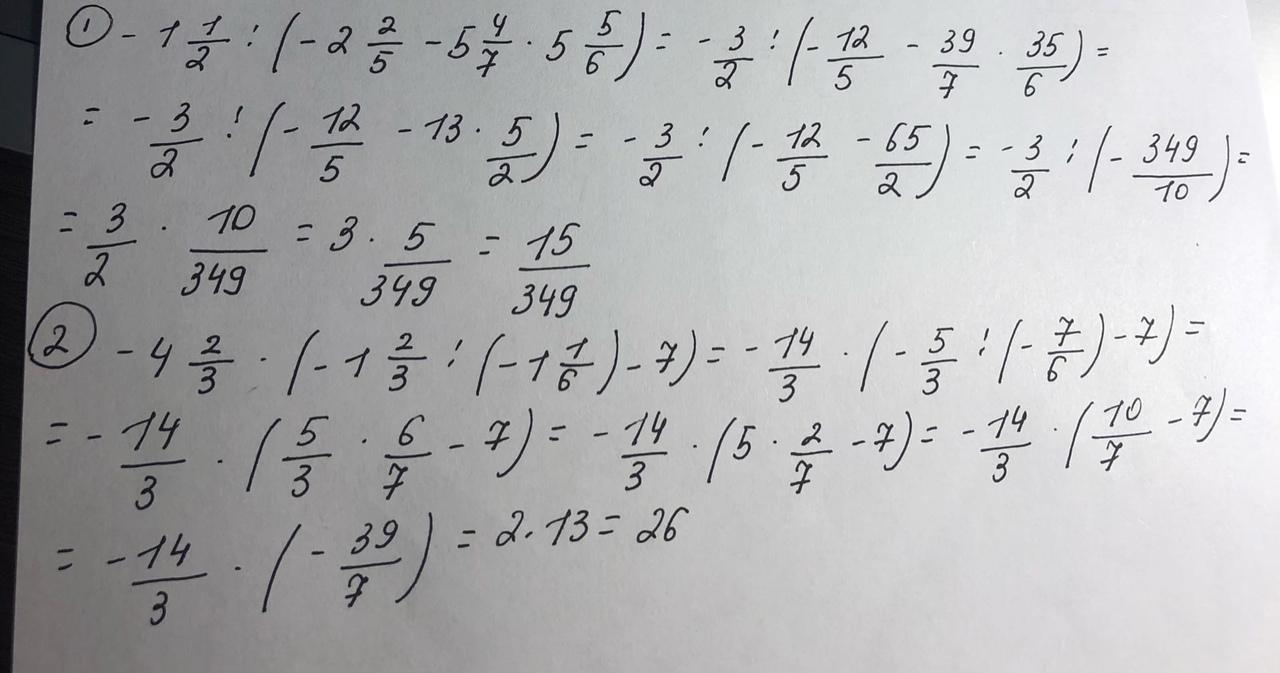 ① - 1 1/2 : (- 2 2/5 - 5 4/7 · 5 5/6) = - 3/2 : (- 12/5 - 39/7 · 35/6) =
= - 3/2 : (- 12/5 - 13 · 5/2) = - 3/2 : (- 12/5 - 65/2) = - 3/2 : (- 349/10) =
= 3/2 · 10/349 = 3 · 5/349 = 15/349
② - 4 2/3 · (- 1 2/3 : (- 1 1/6) - 7) = - 14/3 · (- 5/3 : (- 7/6) - 7) =
= - 14/3 · (5/3 · 6/7 - 7) = - 14/3 · (5 · 2/7 - 7) = - 14/3 · (10/7 - 7) =
= - 14/3 · (- 39/7) = 2 · 13 = 26